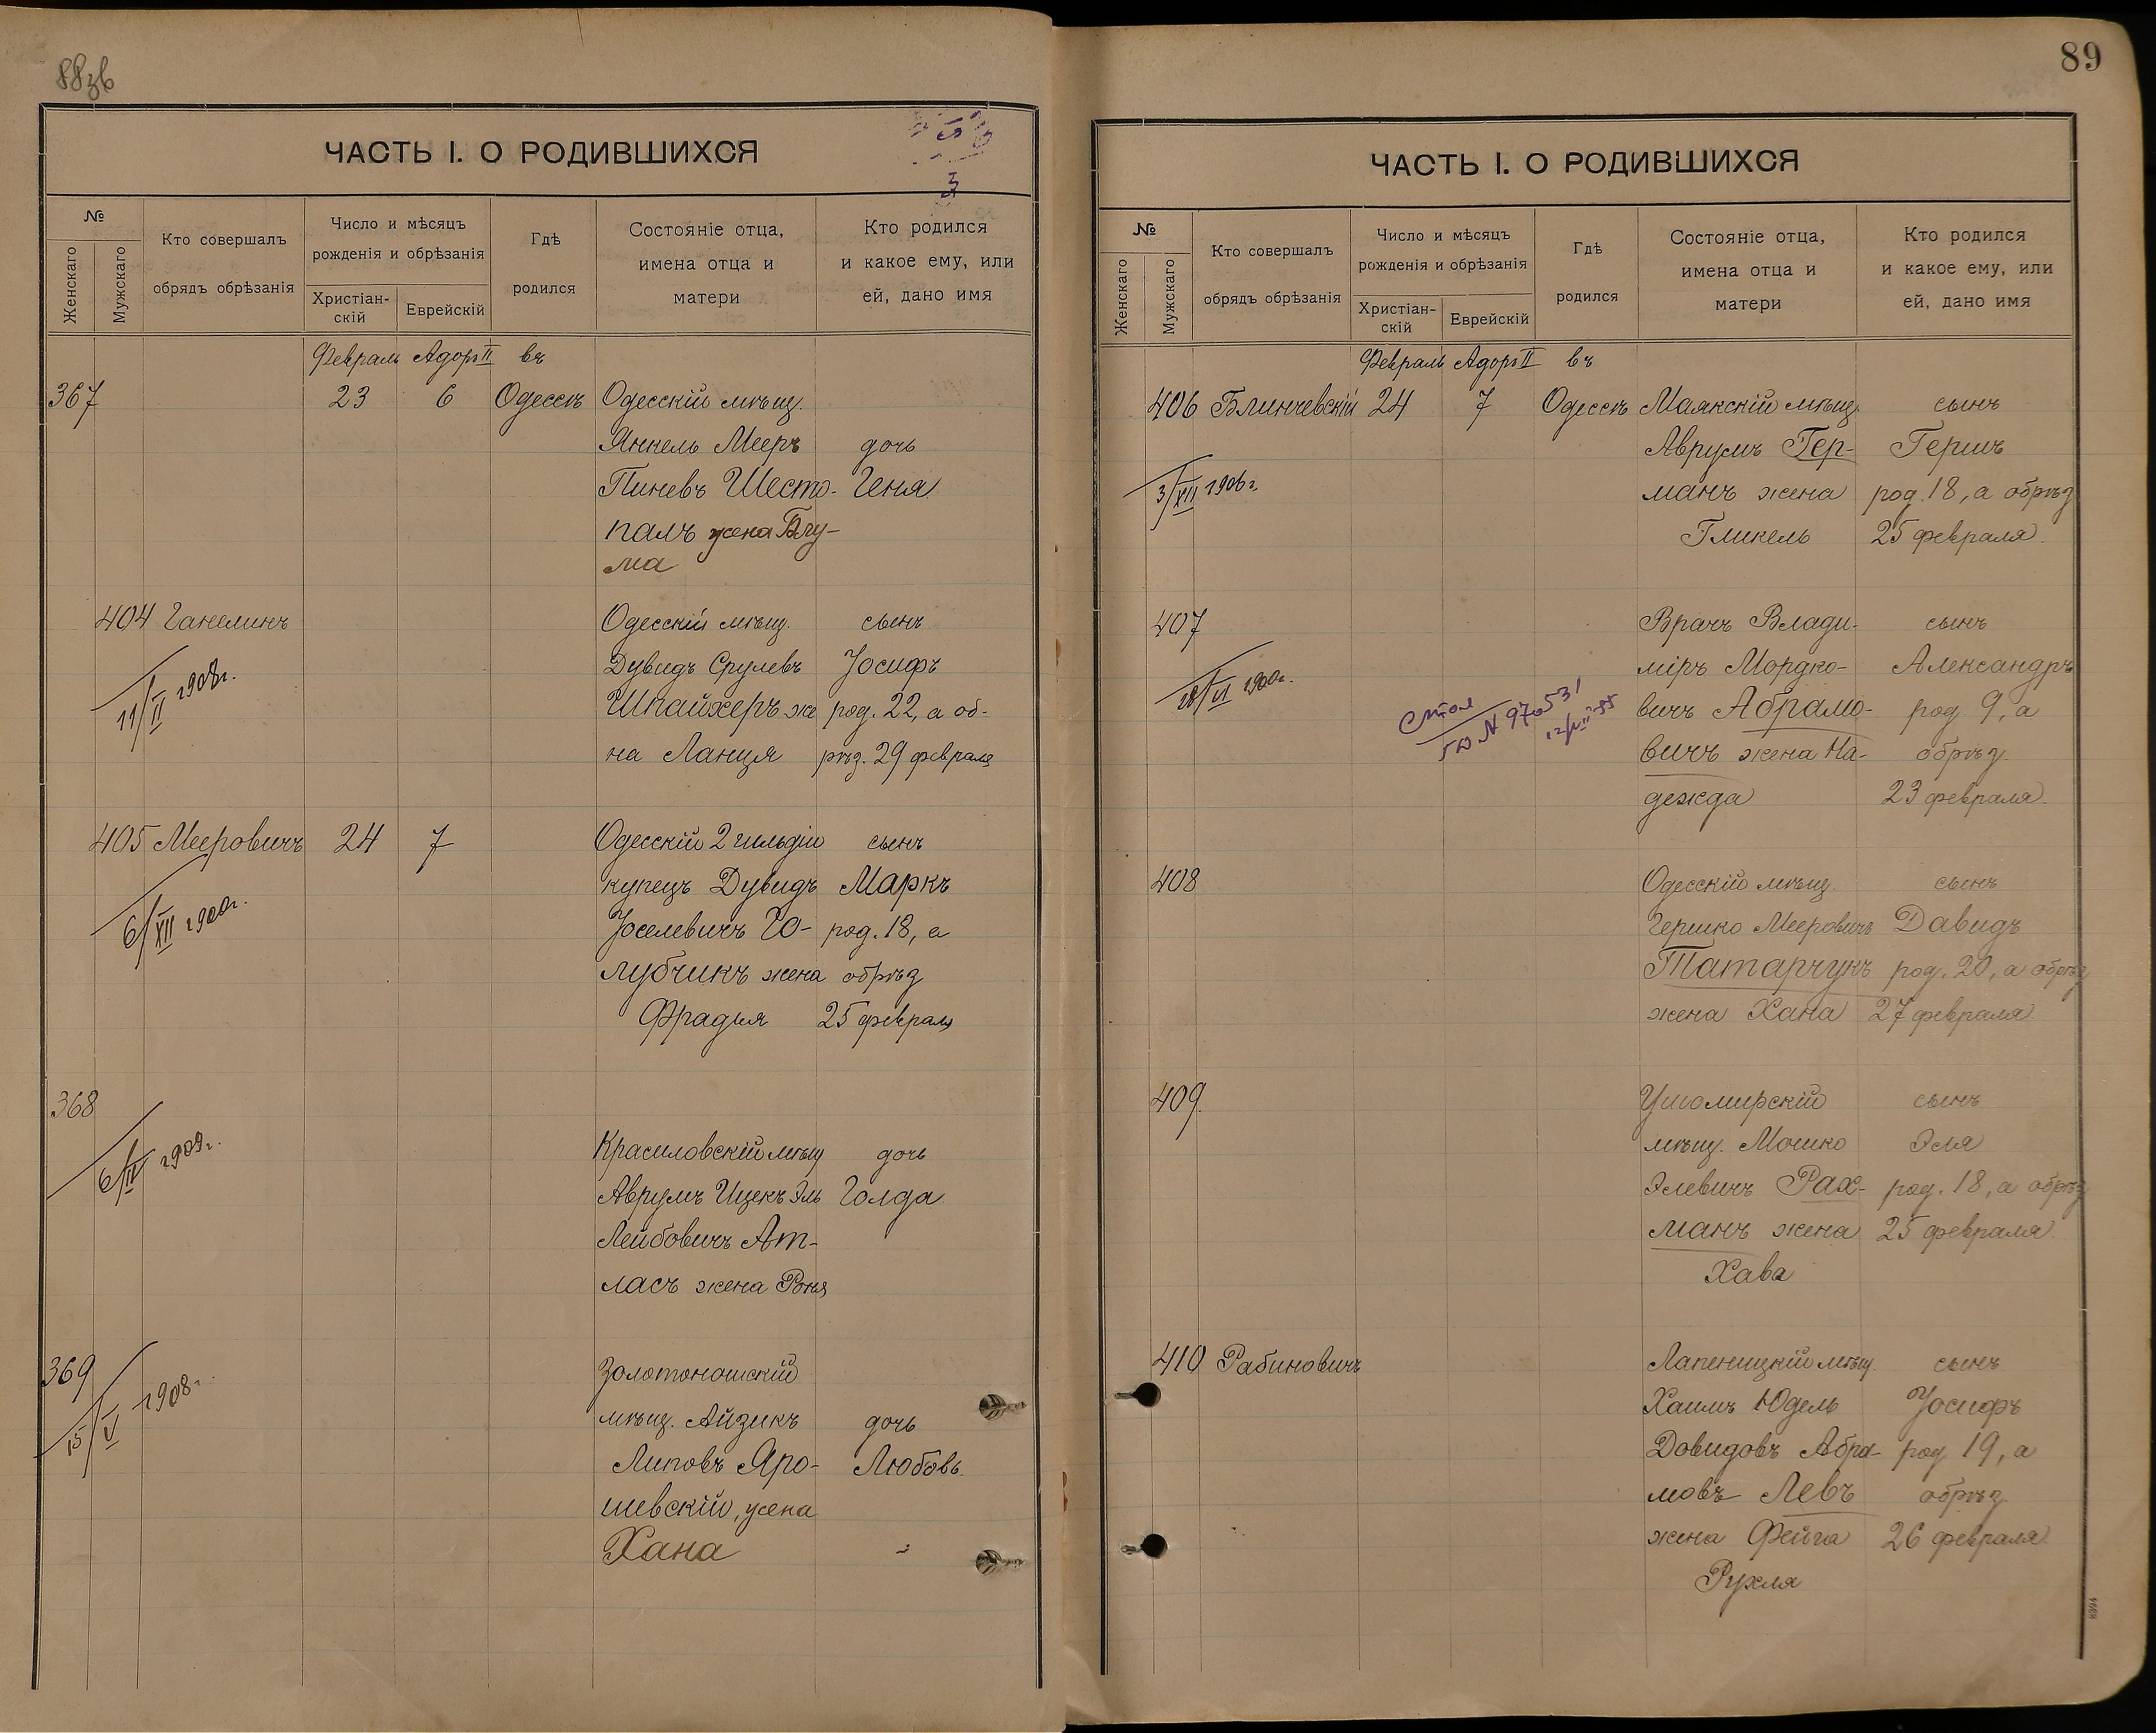 88зв
ЧАСТЬ I. О РОДИВШИХСЯ
№
Женскаго
Мужскаго
Кто совершалъ
обрядъ обрѣзанія
Число и мѣсяцъ
рожденія и обрѣзанія
Христіан-
скій
Еврейскій
Гдѣ
родился
Состояніе отца,
имена отца и
матери
Кто родился
и какое ему, или
ей, дано имя
Февраль Адоръ II въ
367 23 6 Одессѣ Одесскій мѣщ.
Янкель Мееръ дочь
Пиневъ Шесто- Геня
палъ жена Блу-
ма
404 Ганелинъ Одесскій мѣщ. сынъ
Дувидъ Срулевъ Іосифъ
Шпайхеръ же род. 22, а об-
на Ланця рѣз. 29 февраля
11/II 1908г.
405 Мееровичъ 24 7 Одесскій 2 гильдіи сынъ
купецъ Дувидъ Маркъ
Іоселевичъ Го- род. 18, а
лубчикъ жена обрѣз
Фрадля 25 февраля
6/XII 1900г.
368
Красиловскій мѣщ дочь
Аврумъ Ицекъ Эль Голда
Лейбовичъ Ат-
ласъ жена Роня
1909г.
369 Золотоношскій
мѣщ. Айзикъ дочь
Липовъ Яро- Любовь
шевскій, жена
Хана
15/V 1908г.
89
ЧАСТЬ I. О РОДИВШИХСЯ
№
Женскаго
Мужскаго
Кто совершалъ
обрядъ обрѣзанія
Число и мѣсяцъ
рожденія и обрѣзанія
Христіан-
скій
Еврейскій
Гдѣ
родился
Состояніе отца,
имена отца и
матери
Кто родился
и какое ему, или
ей, дано имя
Февраль Адоръ II въ
406 Блинчевскій 24 7 Одессѣ Маякскій мѣщ. сынъ
Аврумъ Гер- Гершъ
манъ жена род. 18, а обрѣз
Гликель 25 февраля
3/XII 1906г.
407 Врачъ Влади- сынъ
міръ Мордко- Александръ
вичъ Абрамо- род 9, а
вичъ жена На- обрѣз.
дежда 23 февраля
1900г.
N 970531
408 Одесскій мѣщ. сынъ
Гершко Мееровичъ Давидъ
Татарчукъ род. 20, а обрѣз
жена Хана 27 февраля
409. Ушомирскій сынъ
мѣщ. Мошко Эля
Элевичъ Рах- род. 18, а обрѣз
манъ жена 25 февраля
Хава
410 Рабиновичъ Лапеницкій мѣщ. сынъ
Хаимъ Юдель Іосифъ
Довидовъ Абра- род 19, а
мовъ Левъ обрѣз.
жена Фейга 26 февраля
Рухля